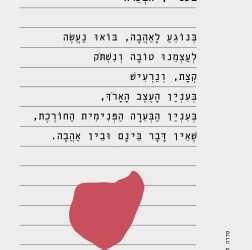 בְּנוֹגֵעַ לָאַהֲבָה, בּוֹאוּ נַעֲשֶׂה
לְעַצְמֵנוּ טוֹבָה וְנִשְׁתֹּק
קְצָת, וְנַרְעִישׁ
בְּעִנְיַן הָעֶצֶב הָאָרֹךְ,
בְּעִנְיַן הַבְּעֵרָה הַפְּנִימִית הַחוֹרֶכֶת,
שֶׁאֵין דָּבָר בֵּינָם וּבֵין אַהֲבָה.